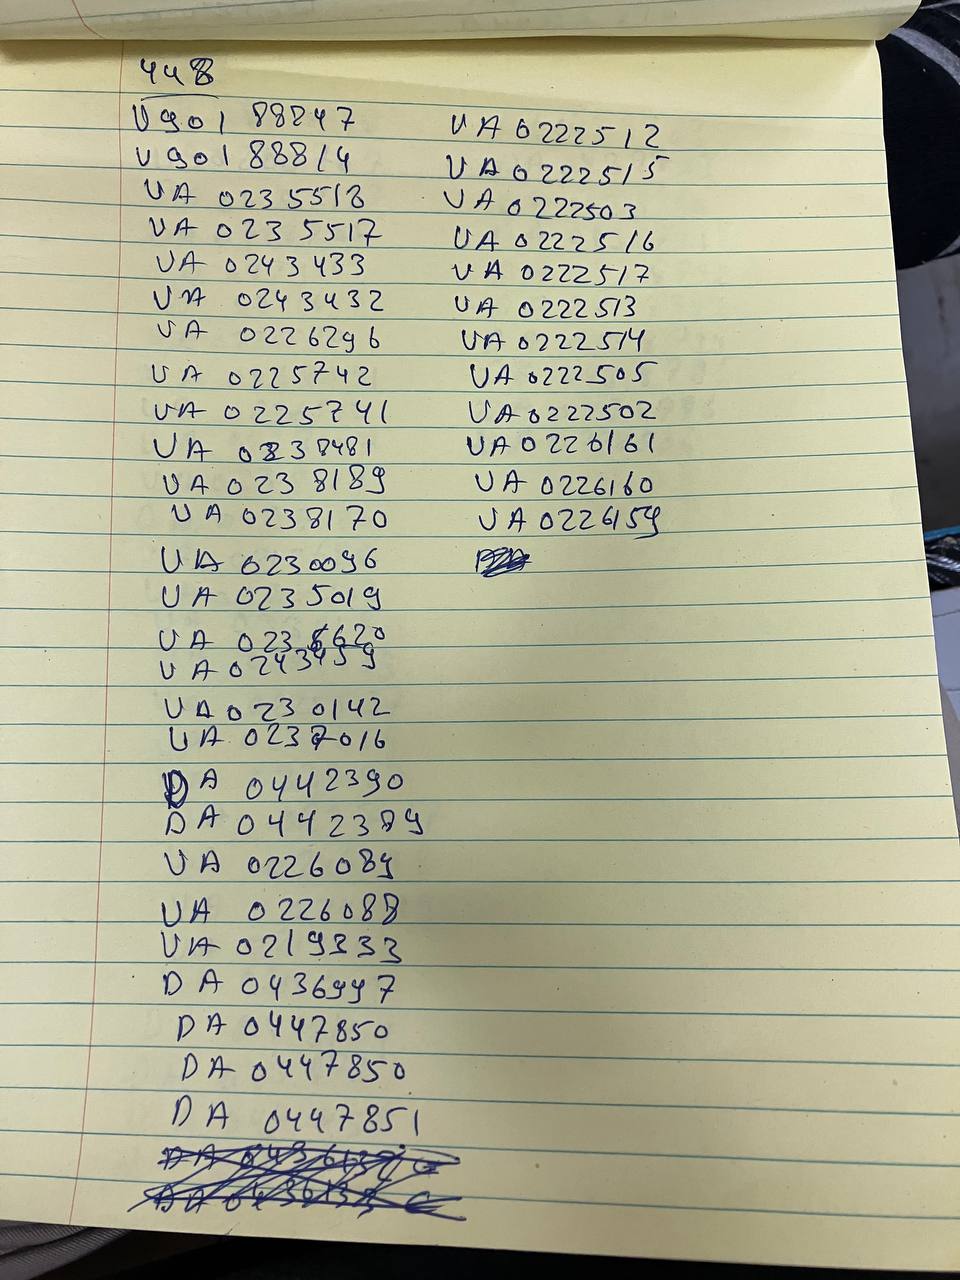 448
Ug01 88247
Ug01 88814
UA 0235518
UA 0235517
UA 0243433
UA 0243432
UA 0226296
UA 0225742
UA 0225741
UA 0238481
UA 0238189
UA 0238170
UA 0230096
UA 0235019
UA 0235620
UA 0243459
UA 0230142
UA 0237016
DA 0442390
DA 0442389
UA 0226089
UA 0226088
UA 0219333
DA 0436997
DA 0447850
DA 0447850
DA 0447851
UA 0222512
UA 0222515
UA 0222503
UA 0222516
UA 0222517
UA 0222513
UA 0222514
UA 0222505
UA 0222502
UA 0226161
UA 0226160
UA 0226159